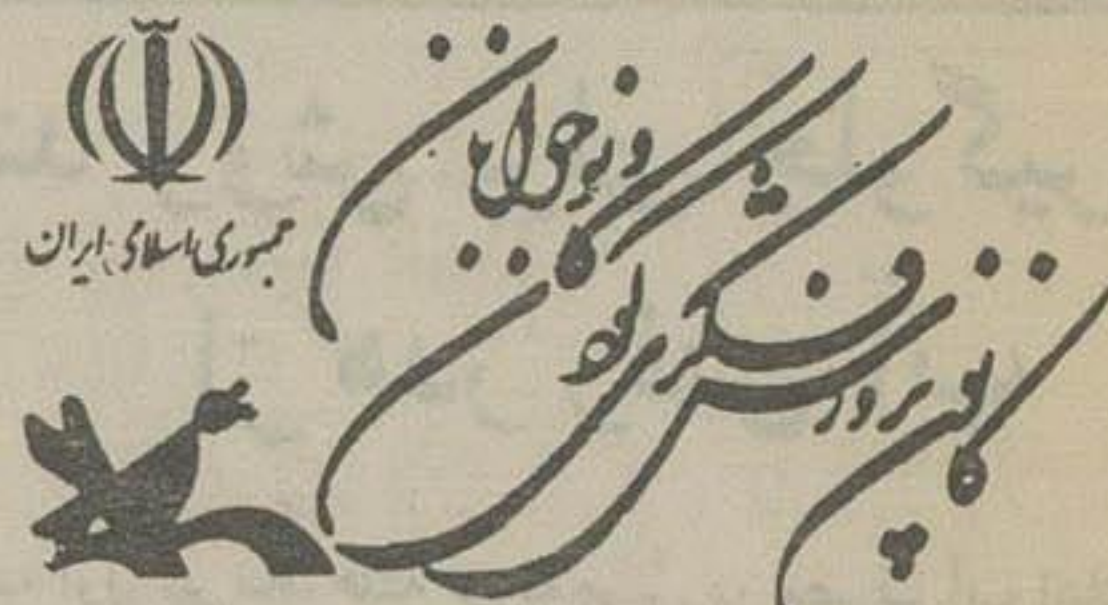 جمهوری اسلامی ایران
کانون پرورش فکری کودکان و نوجوانان